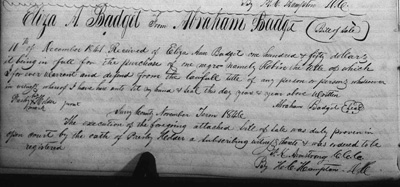 By H. C. Hampton D.C.
Eliza A Badget From Abraham Badget (Bill of Sale)
10th of December 1845 Received of Eliza Ann Badget one hundred & fifty dollars
it being in full for the purchase of one negro namely the title of which
I for ever warrent and defend from the lawfull title of any person or persons whosoever
in witness whereof I have here unto set my hand & seal the day & year above written
Abraham Badget (Seal)
Holder
Surry County November Term 1846
The execution of the foregoing attached bill of Sale was duly proven in
open court by the oath of Holder a Subscribing witness thereto & was ordered to be
registered
Armstrong C.C.C.
By H. C. Hampton D.C.